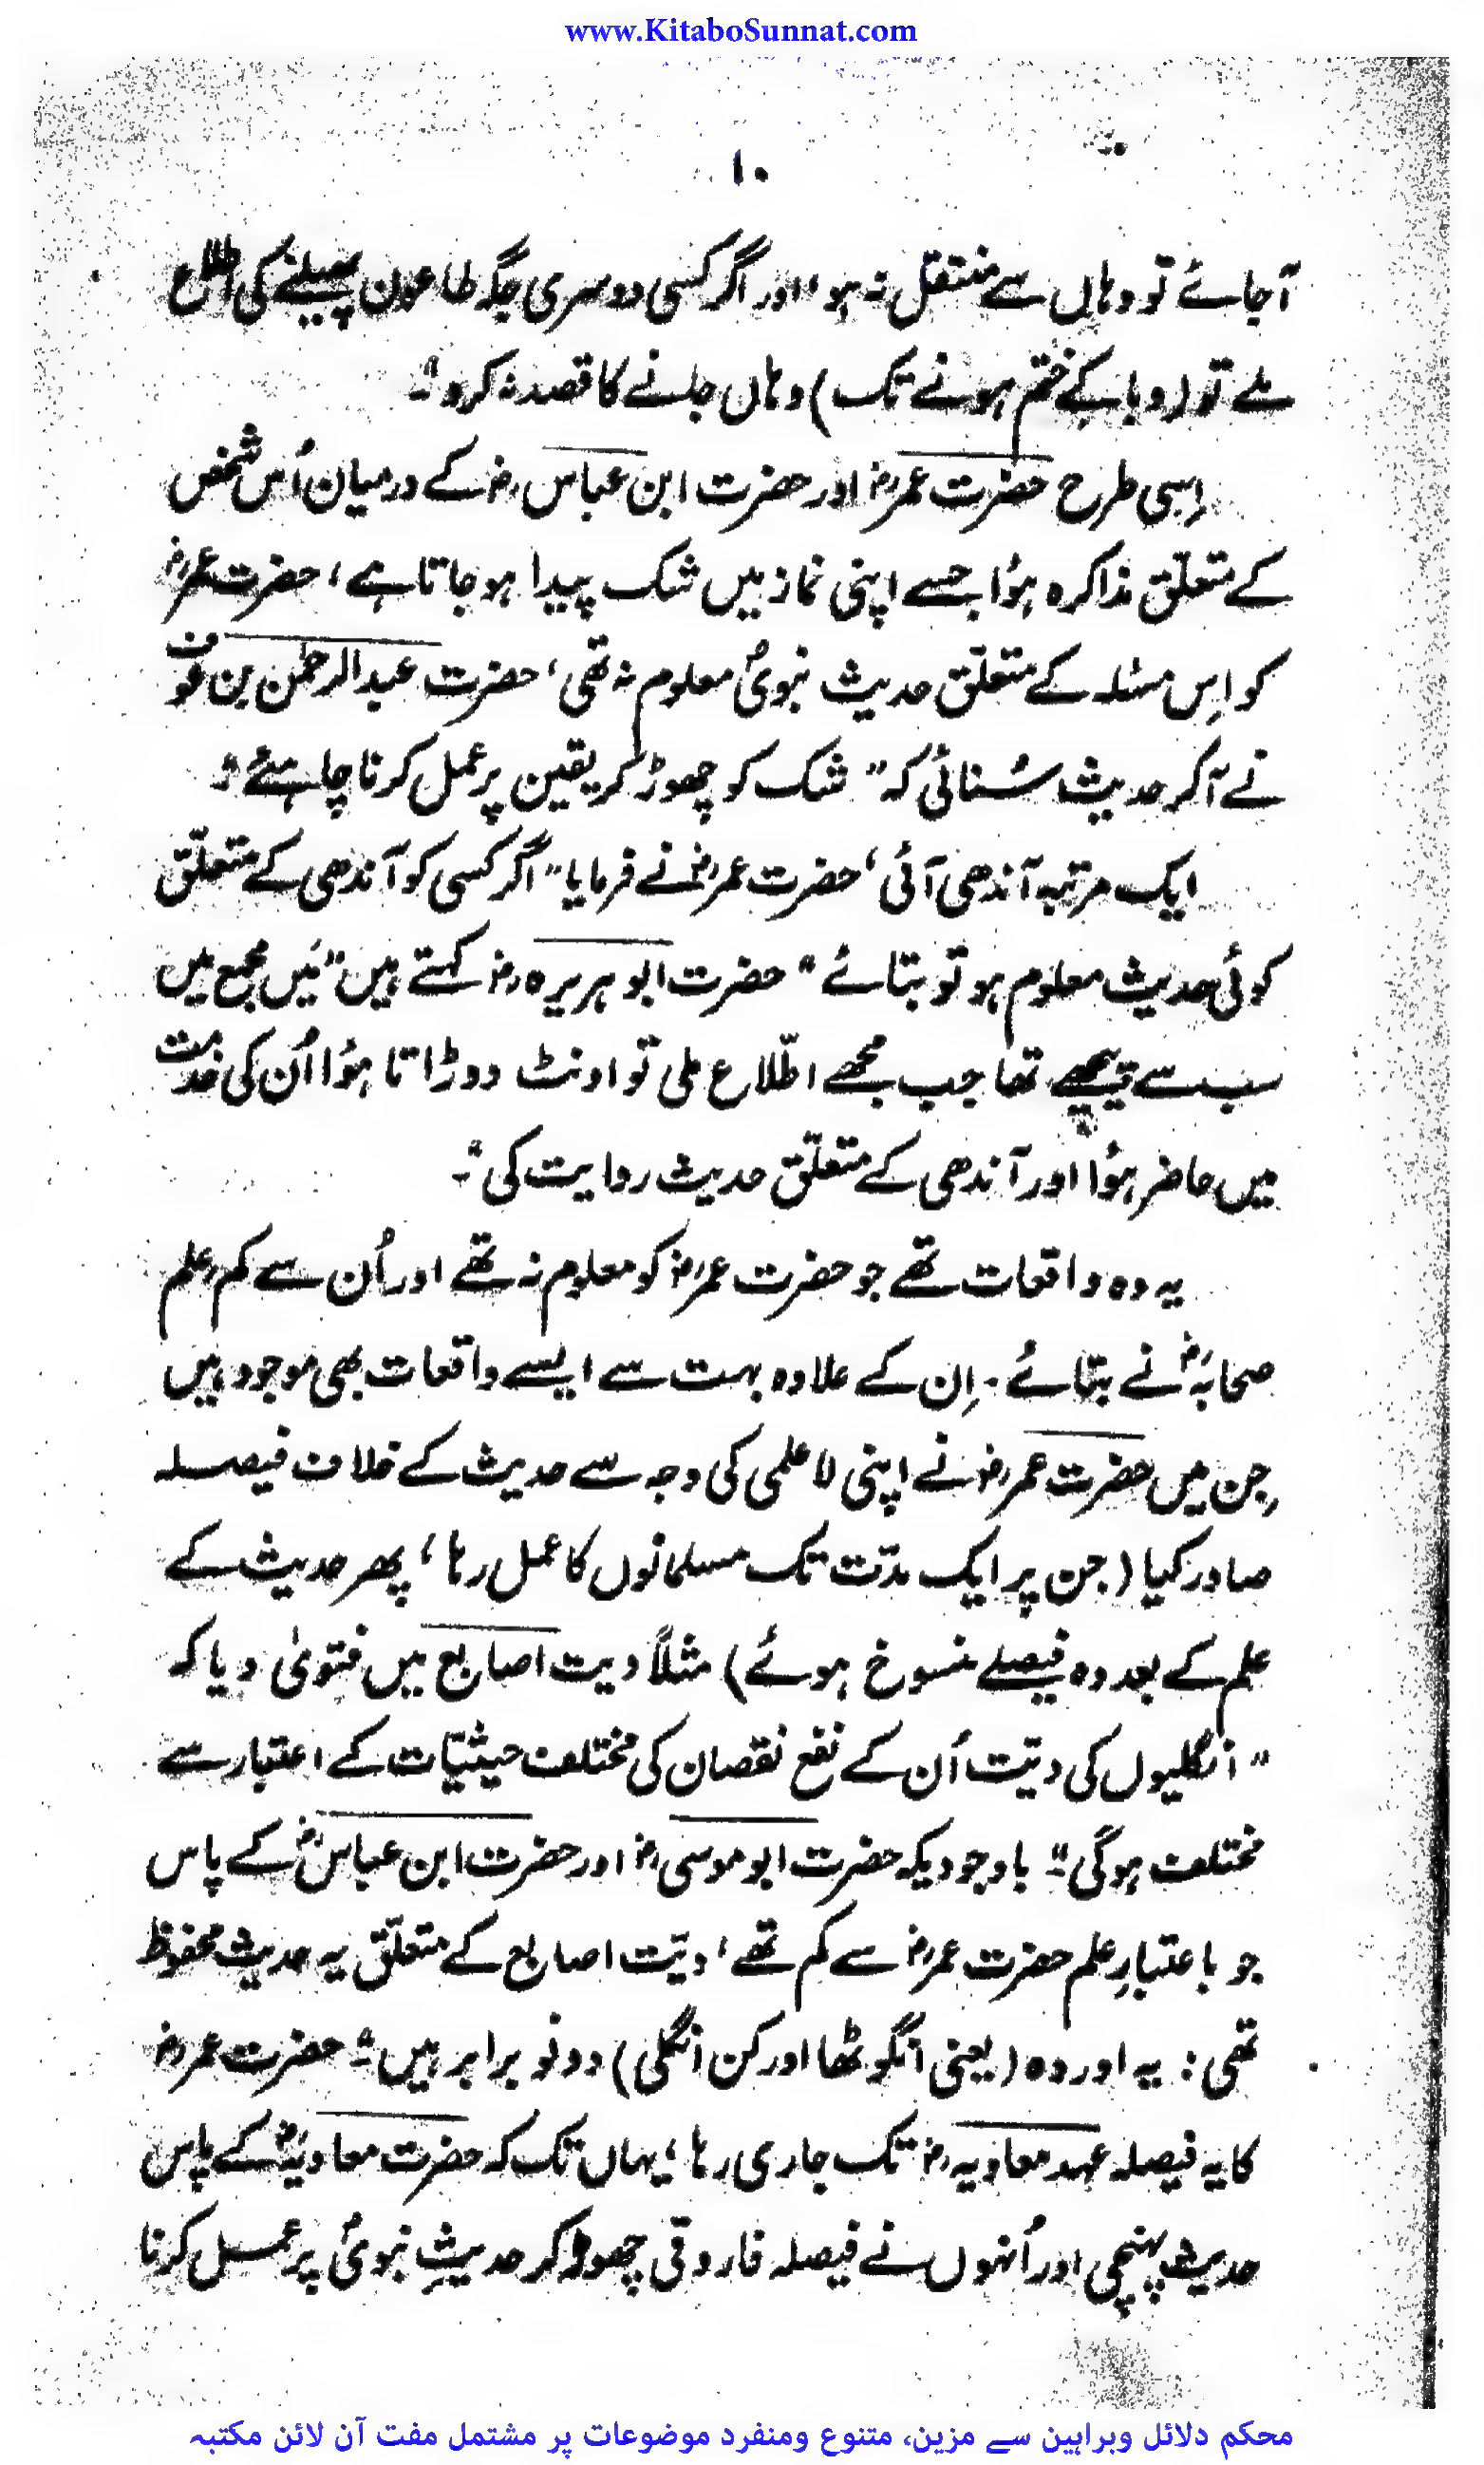 www.KitaboSunnat.com
۱۰
آجائے تو وہاں سے منتقل نہ ہو، اور اگر کسی دوسری جگہ طاعون پھیلنے کی اطلاع
ملے تو (وبا کے ختم ہونے تک) وہاں جانے کا قصد نہ کرو"۔
اِسی طرح حضرت عمرؓ اور حضرت ابن عباسؓ کے درمیان اُس شخص
کے متعلّق مذاکرہ ہوُا جسے اپنی نماز میں شک پیدا ہو جاتا ہے، حضرت عمرؓ
کو اِس مسئلہ کے متعلّق حدیث نبویؐ معلوم نہ تھی، حضرت عبدالرحمٰن بن عوف
نے آکر حدیث سُنائی کہ "شک کو چھوڑ کر یقین پر عمل کرنا چاہئے"۔
ایک مرتبہ آندھی آئی، حضرت عمرؓ نے فرمایا "اگر کسی کو آندھی کے متعلّق
کوئی حدیث معلوم ہو تو بتائے" حضرت ابو ہریرہؓ کہتے ہیں "مَیں مجمع میں
سب سے پیچھے تھا جب مجھے اطّلاع ملی تو اونٹ دوڑاتا ہوُا اُن کی خدمت
میں حاضر ہوُا اور آندھی کے متعلّق حدیث روایت کی"۔
یہ وہ واقعات تھے جو حضرت عمرؓ کو معلوم نہ تھے اور اُن سے کم علم
صحابہؓ نے بتائے۔ اِن کے علاوہ بہت سے ایسے واقعات بھی موجود ہیں
جِن میں حضرت عمرؓ نے اپنی لاعلمی کی وجہ سے حدیث کے خلاف فیصلہ
صادر کیا (جن پر ایک مدّت تک مسلمانوں کا عمل رہا، پھر حدیث کے
علم کے بعد وہ فیصلے منسوخ ہوئے) مثلاً دیت اصابع میں فتویٰ دیا کہ
"انگلیوں کی دیّت اُن کے نفع نقصان کی مختلف حیثیّات کے اعتبار سے
مختلف ہوگی"۔ باوجودیکہ حضرت ابو موسیؓ اور حضرت ابن عباسؓ کے پاس
جو باعتبارِ علم حضرت عمرؓ سے کم تھے، دیّت اصابع کے متعلّق یہ حدیث محفوظ
تھی: یہ اور وہ (یعنی انگوٹھا اور کن انگلی) دونو برابر ہیں"۔ حضرت عمرؓ
کا یہ فیصلہ عہد معاویہؓ تک جاری رہا، یہاں تک کہ حضرت معاویہؓ کے پاس
حدیث پہنچی اور اُنہوں نے فیصلہ فاروقی چھوڑ کر حدیثِ نبویؐ پر عمل کرنا
محکم دلائل وبراہین سے مزین، متنوع ومنفرد موضوعات پر مشتمل مفت آن لائن مکتبہ